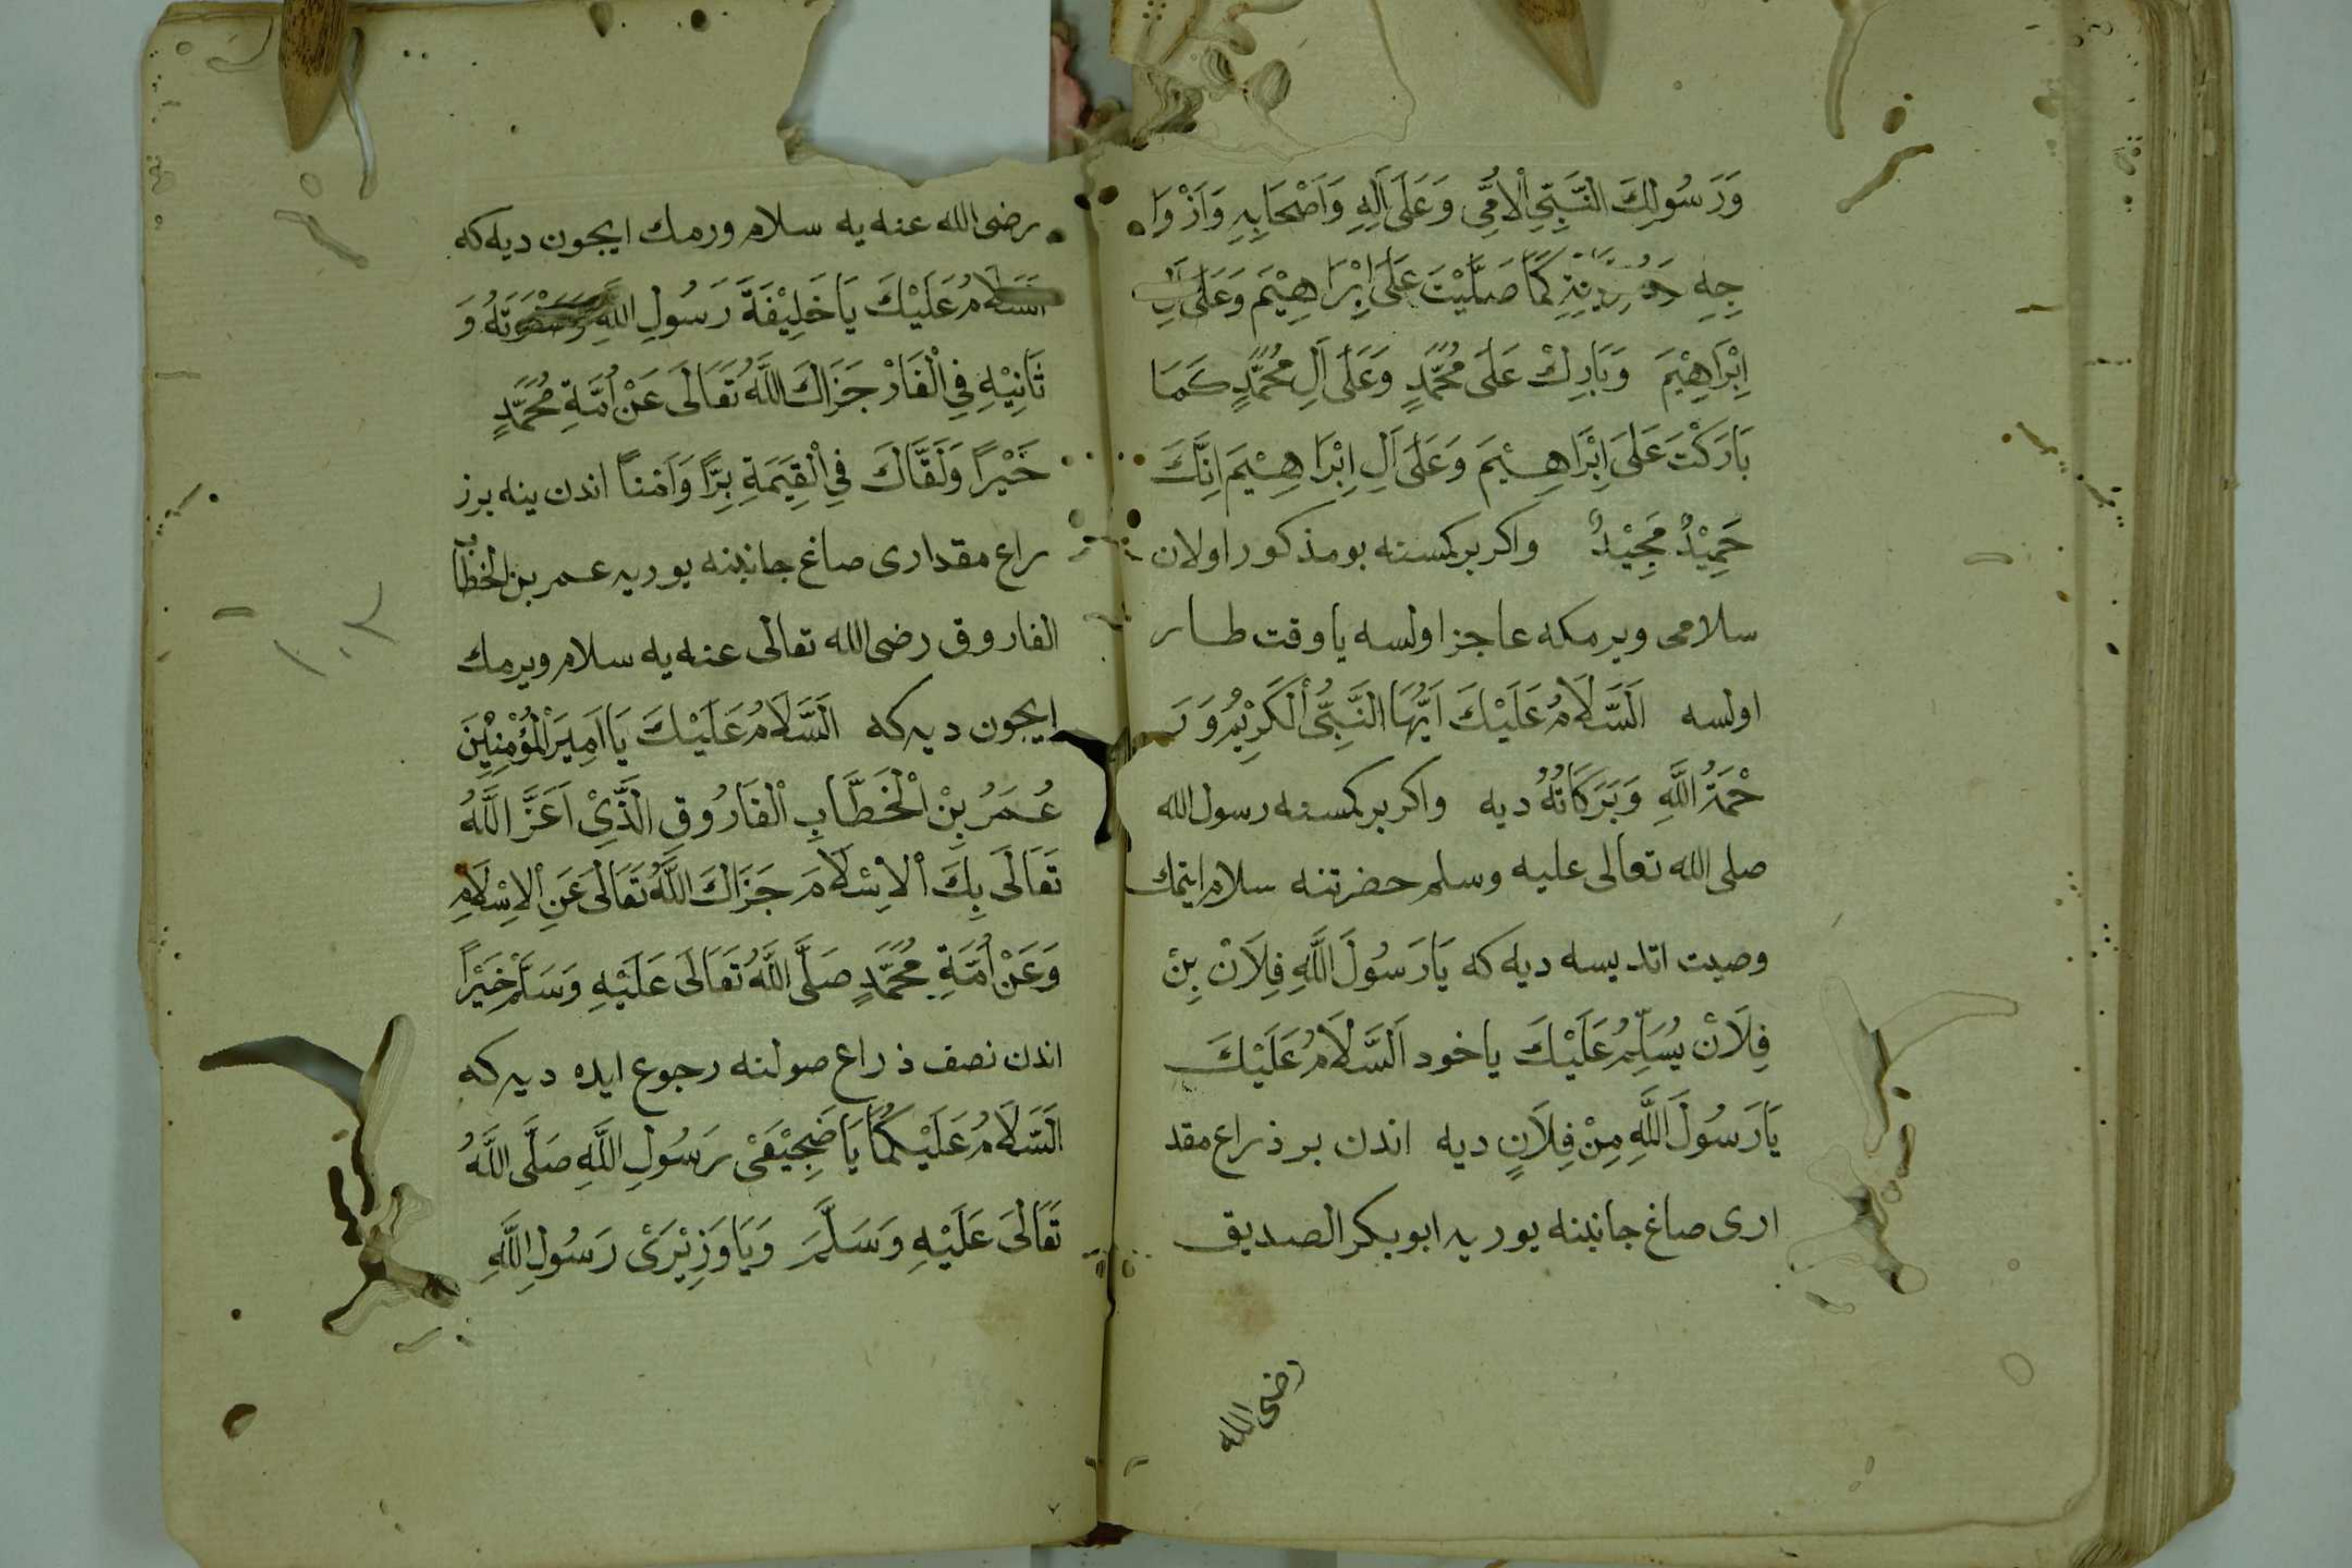 وَرَسُولِكَ النَّبِيِّ الْاُمِّىِّ وَعَلَى اٰلِهِ وَاَصْحَابِهِ وَاَزْوَا
جِهِ كَمَا صَلَّيْتَ عَلَى اِبْرَاهِيْمَ وَعَلَى اٰلِ
اِبْرَاهِيْمَ وَبَارِكْ عَلَى مُحَمَّدٍ وَعَلَى اٰلِ مُحَمَّدٍ كَمَا
بَارَكْتَ عَلَى اِبْرَاهِيْمَ وَعَلَى اٰلِ اِبْرَاهِيْمَ اِنَّكَ
حَمِيْدٌ مَجِيْدٌ واكر بر كمسنه بو مذكور اولان
سلامى ويرمكه عاجز اولسه يا وقت طار
اولسه اَلسَّلَامُ عَلَيْكَ اَيُّهَا النَّبِيُّ الْكَرِيْمُ وَرَ
حْمَةُ اللَّهِ وَبَرَكَاتُهُ ديه واكر بر كمسنه رسول الله
صلى الله تعالى عليه وسلم حضرتنه سلام ايتمك
وصيت اتديسه ديه كه يَارَسُولَ اللَّهِ فِلَانْ بِنْ
فِلَانْ يُسَلِّمُ عَلَيْكَ ياخود اَلسَّلَامُ عَلَيْكَ
يَارَسُولَ اللَّهِ مِنْ فِلَانٍ ديه اندن بر ذراع مقد
ارى صاغ جانبنه يوريه ابوبكر الصديق
رضى الله
رضى الله عنه يه سلام ورمك ايجون ديه كه
اَلسَّلَامُ عَلَيْكَ يَاخَلِيْفَةَ رَسُولِ اللَّهِ وَ
ثَانِيْهِ فِي الْغَارْ جَزَاكَ اللَّهُ تَعَالَى عَنْ اُمَّةِ مُحَمَّدٍ
خَيْرًا وَلَقَّاكَ فِي الْقِيَمَةِ بِرًّا وَاَمْنًا اندن ينه بر ذ
راع مقدارى صاغ جانبنه يوريه عمر بن الخطاب
الفاروق رضى الله تعالى عنه يه سلام ويرمك
ايجون ديه كه اَلسَّلَامُ عَلَيْكَ يَا اَمِيرَ الْمُؤْمِنِيْنَ
عُمَرُ بِنْ الْخَطَّابِ الْفَارُوقِ الَّذِيْ اَعَزَّ اللَّهُ
تَعَالَى بِكَ الْاِسْلَامَ جَزَاكَ اللَّهُ تَعَالَى عَنِ الْاِسْلَامِ
وَعَنْ اُمَّةِ مُحَمَّدٍ صَلَّى اللَّهُ تَعَالَى عَلَيْهِ وَسَلَّمَ خَيْرًا
اندن نصف ذراع صولنه رجوع ايده ديه كه
اَلسَّلَامُ عَلَيْكُمَا يَاضَجِيْعَىْ رَسُولِ اللَّهِ صَلَّى اللَّهُ
تَعَالَى عَلَيْهِ وَسَلَّمَ وَيَاوَزِيْرَىْ رَسُولِ اللَّهِ
١٠٣